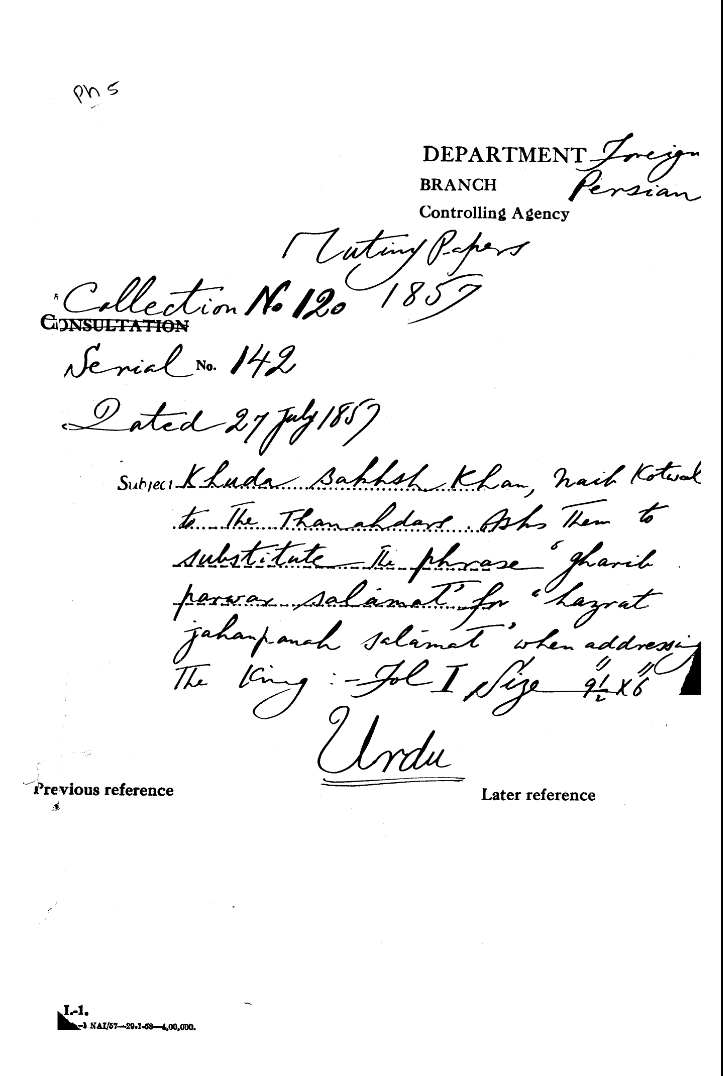 Ph 5
DEPARTMENT Foreign
BRANCH Persian
Controlling Agency
Mutiny Papers
Collection No 120 1857
CONSULTATION
Serial No. 142
Dated 27 July 1857
Subject Khuda Bakhsh Khan, Naib Kotwal
to The Thanahdars. Asks Them to
substitute The phrase "gharib
parwar salámat" for "hazrat
jahanpanah salámat" when addressing
The King :- Fol I Size 9½" X 6"
Urdu
Previous reference
Later reference
I.-1.
NAI/57—29-1-58—4,00,000.